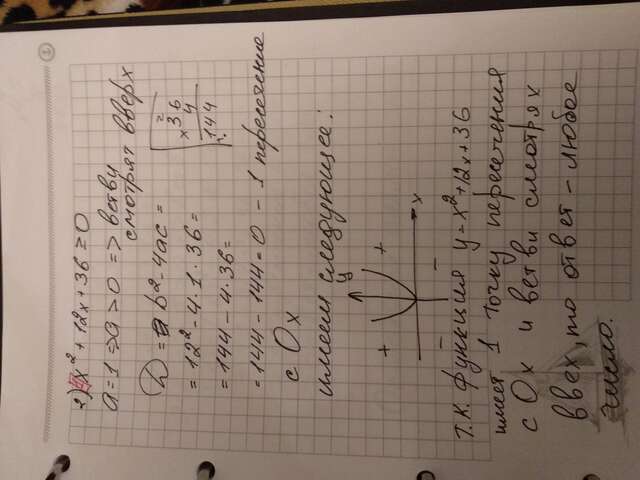 2) x² + 12x + 36 ≥ 0
a = 1 => a > 0 => ветви
смотрят вверх
D = b² - 4ac =
= 12² - 4 · 1 · 36 =
= 144 - 4 · 36 =
= 144 - 144 = 0 - 1 пересечение
с Ox
2
36
x 4
144
имеем следующее:
y
+ +
x
- -
Т.К. функция y = x² + 12x + 36
имеет 1 точку пересечения
с Ox и ветви смотрях
ввех, то ответ - любое
число.